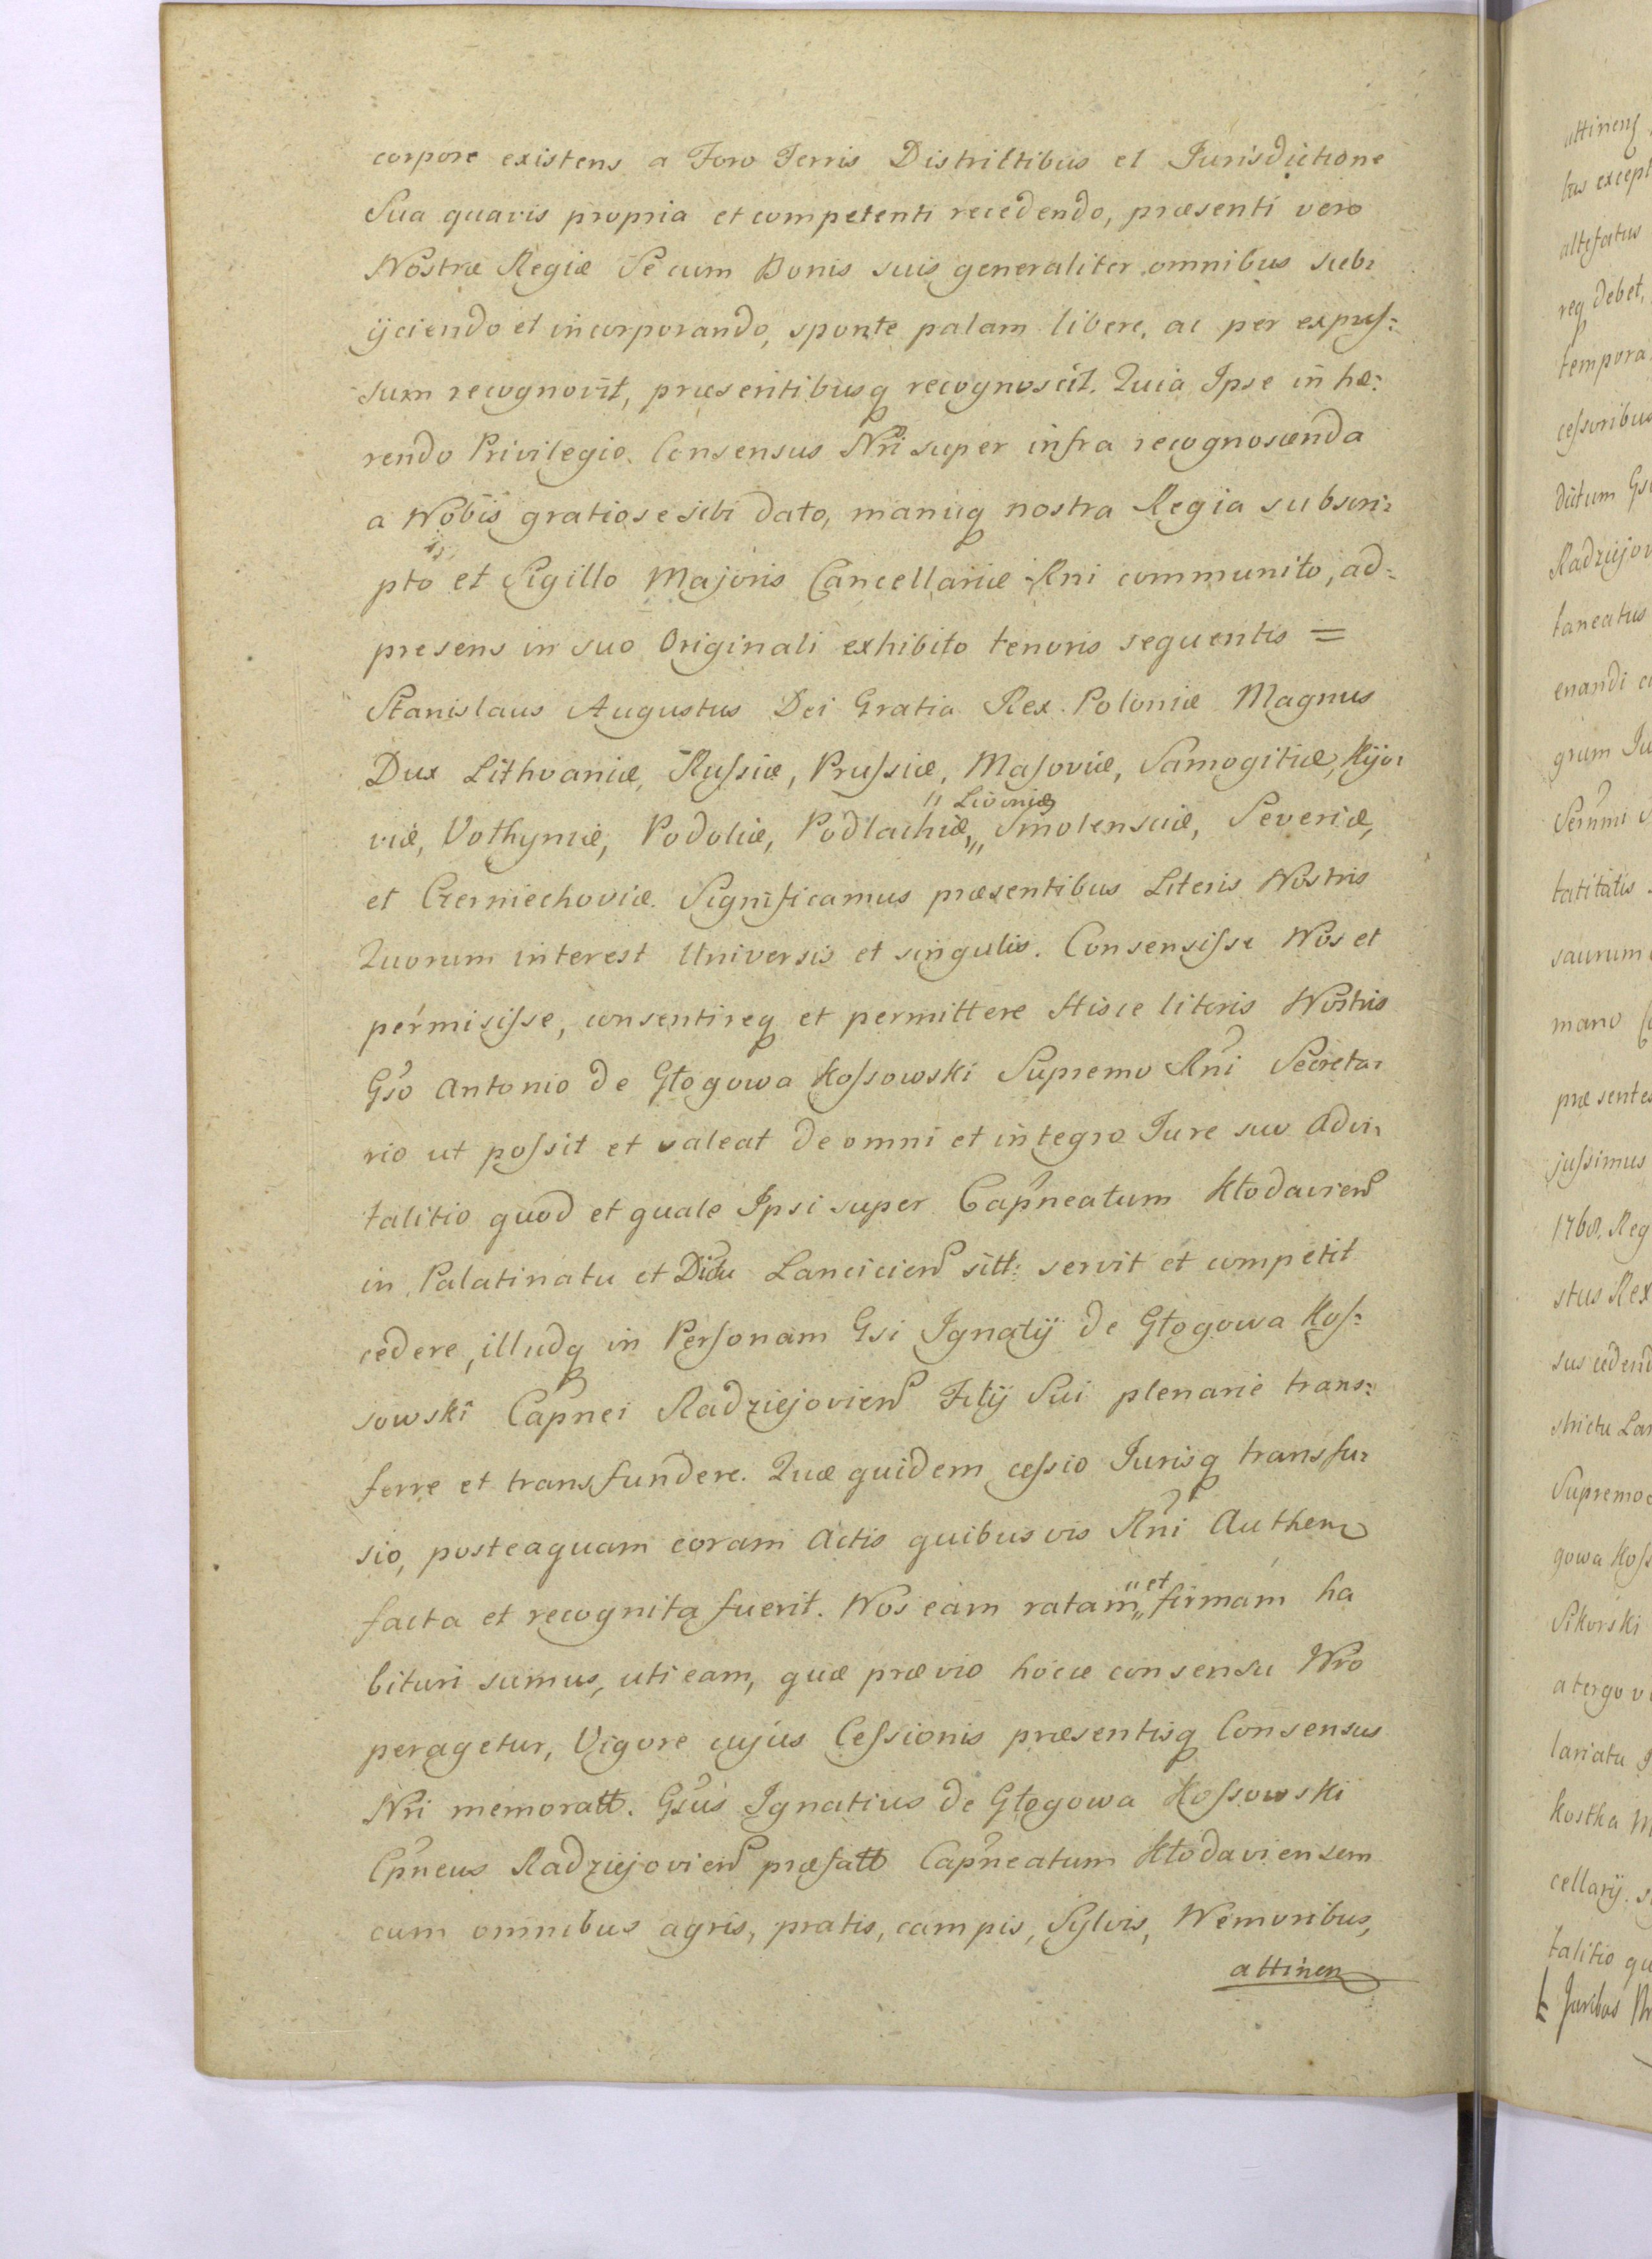 corpore existens a Foro Terris Districtibus et Jurisdictione
Sua quavis propria et competenti recedendo, præsenti vero
Nostræ Regiæ Se cum Bonis suis generaliter omnibus sub:
ijciendo et incorporando, sponte palam libere, ac per expreſ:
sum recognovit, præsentibusq recognoscit. Quia Ipse in hæ:
rendo Privilegio Consensus Nri super infra recognoscenda
a Nobis gratiose sibi dato, manuq nostra Regia subscri:
pto et Sigillo Majoris Cancellariæ Rni communito, ad:
presens in suo Originali exhibito tenoris sequentis =
Stanislaus Augustus Dei Gratia Rex Poloniæ Magnus
Dux Lithvaniæ, Ruſsiæ, Pruſsiæ, Maſoviæ, Samogitiæ, Kijo:
viæ, Volhyniæ, Podoliæ, Podlachiæ, " Livoniæ Smolensciæ, Severiæ,
et Czerniechoviæ. Significamus præsentibus Literis Nostris
Quorum interest Universis et singulis. Consensiſse Nos et
permisiſse, consentireq et permittere Hisce literis Nostris
Gso Antonio de Głogowa Koſsowski Supremo Rni Secreta:
rio ut poſsit et valeat de omni et integro Jure suo Advi:
talitio quod et quale Ipsi super Capneatum Kłodavien
in Palatinatu et Dictu Lancicien sitt: servit et competit
cedere, illudq in Perſonam Gsi Ignatij de Głogowa Koſ:
sowski Capnei Radziejovien Filij Sui plenarie trans:
ferre et transfundere. Quæ quidem ceſsio Jurisq transfu:
sio, posteaquam coram Actis quibusvis Rni Authen
facta et recognita fuerit. Nos eam ratam " et firmam ha
bituri sumus, uti eam, quæ prævio hocce consensu Nro
peragetur, Vigore cujus Ceſsionis præsentisq Consensus
Nri memoratt. Gsus Ignatius de Głogowa Koſsowski
Cpneus Radziejovien præfatt Capneatum Kłodaviensem
cum omnibus agris, pratis, campis, Sylvis, Nemoribus,
attinen